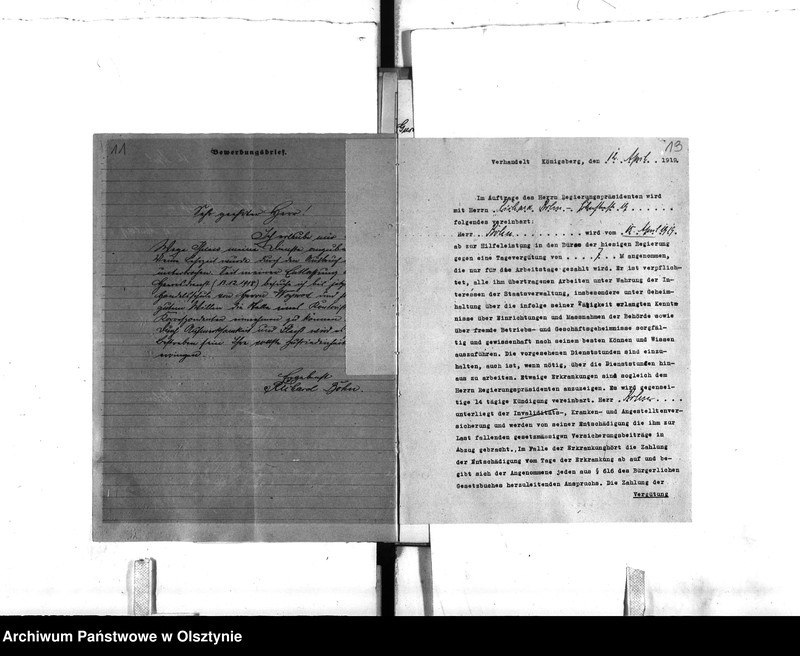 11
Bewerbungsbrief.
Sehr geehrter Herr!
Ich erlaube mir
Wege Ihnen meine Dienste
Meine Lehrzeit wurde durch den
Seit meiner Entlassung
Heeresdienst (18.12.1918) besuche ich
Handelsschule von Herrn
guten Willen die Stelle eines
Korrespondenten einnehmen zu können
Durch Aufmerksamkeit und Fleiß wird es
Bestreben sein Ihre vollste Zufriedenheit
erringen.
Ergebenst
Richard Böhm.
Gus
13
Verhandelt Königsberg, den April. 1919.
Im Auftrage des Herrn Regierungspräsidenten wird
mit Herrn Richard Böhm
folgendes vereinbart:
Herr Böhm wird vom April 1919.
ab zur Hilfeleistung in den Büros der hiesigen Regierung
gegen eine Tagevergütung von . . . 7 . . M angenommen,
die nur für die Arbeitstage gezahlt wird. Er ist verpflich-
tet, alle ihm übertragenen Arbeiten unter Wahrung der In-
teressen der Staatsverwaltung, insbesondere unter Geheim-
haltung über die infolge seiner Tätigkeit erlangten Kenntn
nisse über Einrichtungen und Massnahmen der Behörde sowie
über fremde Betriebs- und Geschäftsgeheimnisse sorgfäl-
tig und gewissenhaft nach seinem besten Können und Wissen
auszuführen. Die vorgesehenen Dienststunden sind einzu-
halten, auch ist, wenn nötig, über die Dienststunden hin-
aus zu arbeiten. Etwaige Erkrankungen sind sogleich dem
Herrn Regierungspräsidenten anzuzeigen. Es wird gegensei-
tige 14 tägige Kündigung vereinbart. Herr
unterliegt der Invaliditäts-, Kranken- und Angestelltenver-
sicherung und werden von seiner Entschädigung die ihm zur
Last fallenden gesetzmässigen Versicherungsbeiträge in
Abzug gebracht. Im Falle der Erkrankunghört die Zahlung
der Entschädigung vom Tage der Erkrankung ab auf und be-
gibt sich der Angenommene jeden aus § 616 des Bürgerlichen
Gesetzbuches herzuleitenden Anspruchs. Die Zahlung der
Vergütung
Archiwum Państwowe w Olsztynie